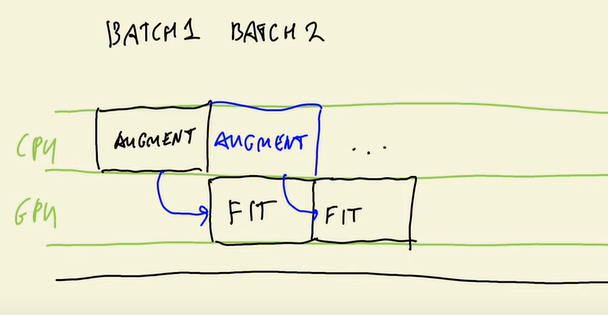 BATCH 1 BATCH 2
CPU AUGMENT AUGMENT ...
GPU FIT FIT